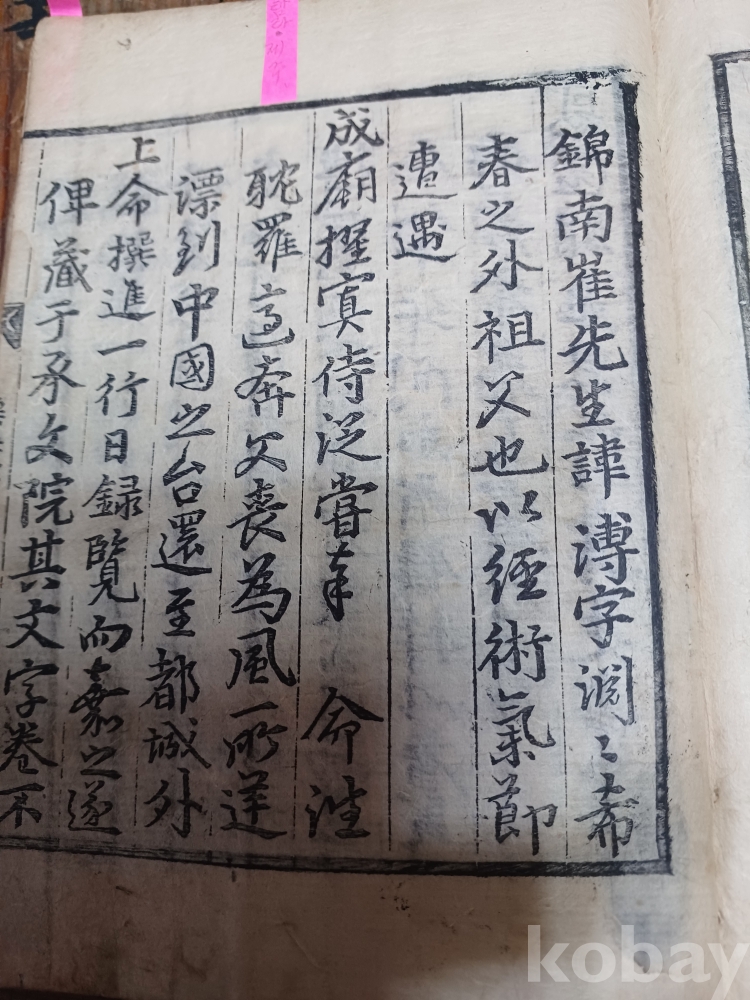 錦南崔先生諱溥字渕〻希
春之外祖父也以經術氣節
遭遇
成廟擢寘侍從嘗奉 命往
耽羅適奔父喪為風所逆
漂到中國之台還至都城外
上命撰進一行日録覽而嘉之遂
俾藏于承文院其文字卷不
kobay